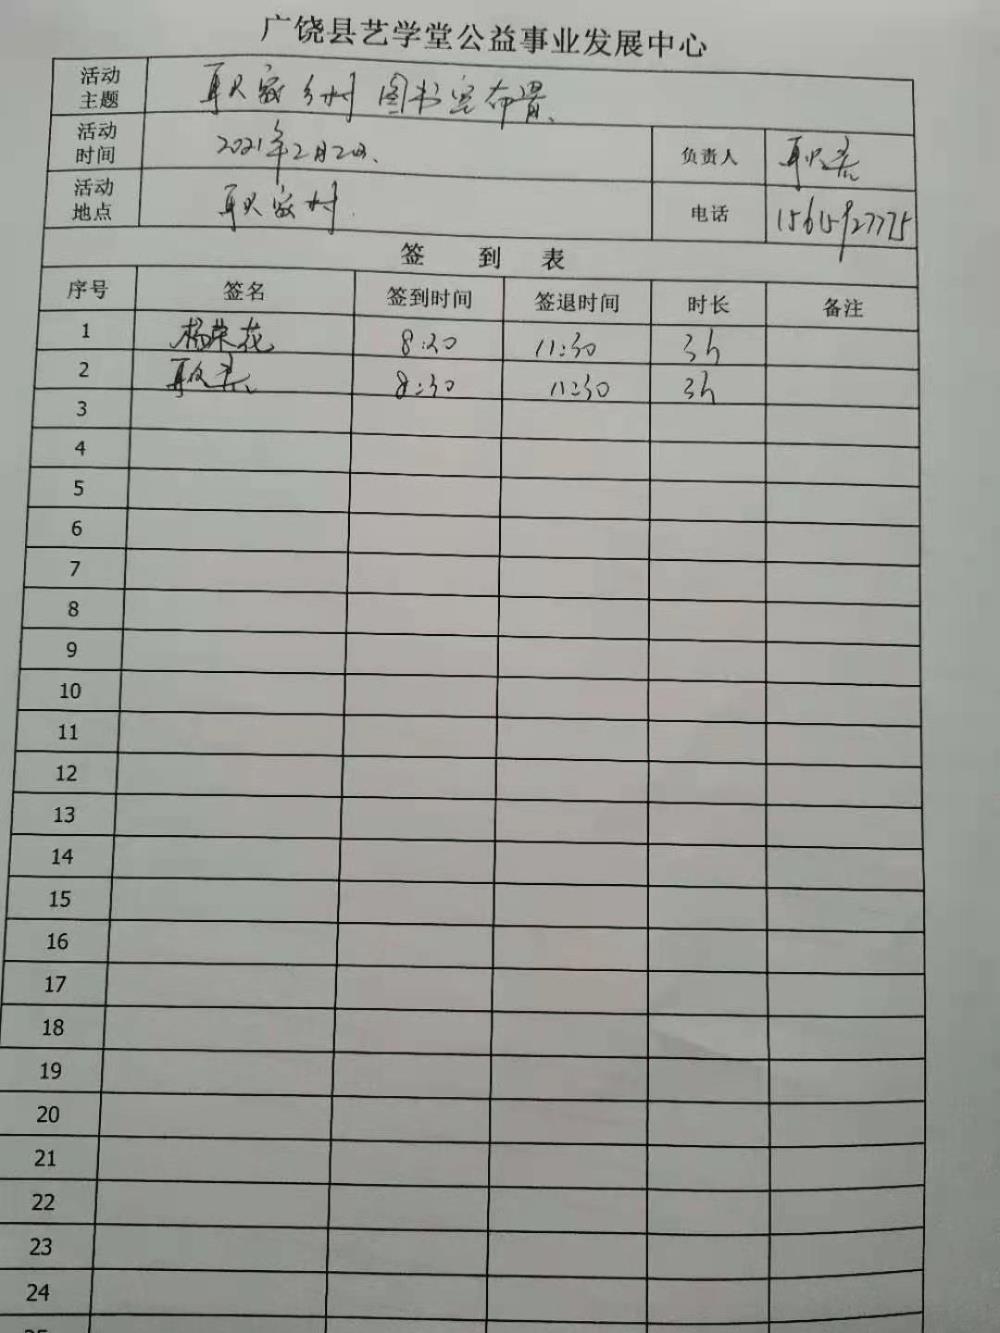 广饶县艺学堂公益事业发展中心
活动主题 耿家乡村图书室布置、
活动时间 2021年2月2日、 负责人
活动地点 家村. 电话 15615927775
签到表
序号 签名 签到时间 签退时间 时长 备注
1 杨荣花 8:30 11:30 3h
2 8:30 11:30 3h
3
4
5
6
7
8
9
10
11
12
13
14
15
16
17
18
19
20
21
22
23
24